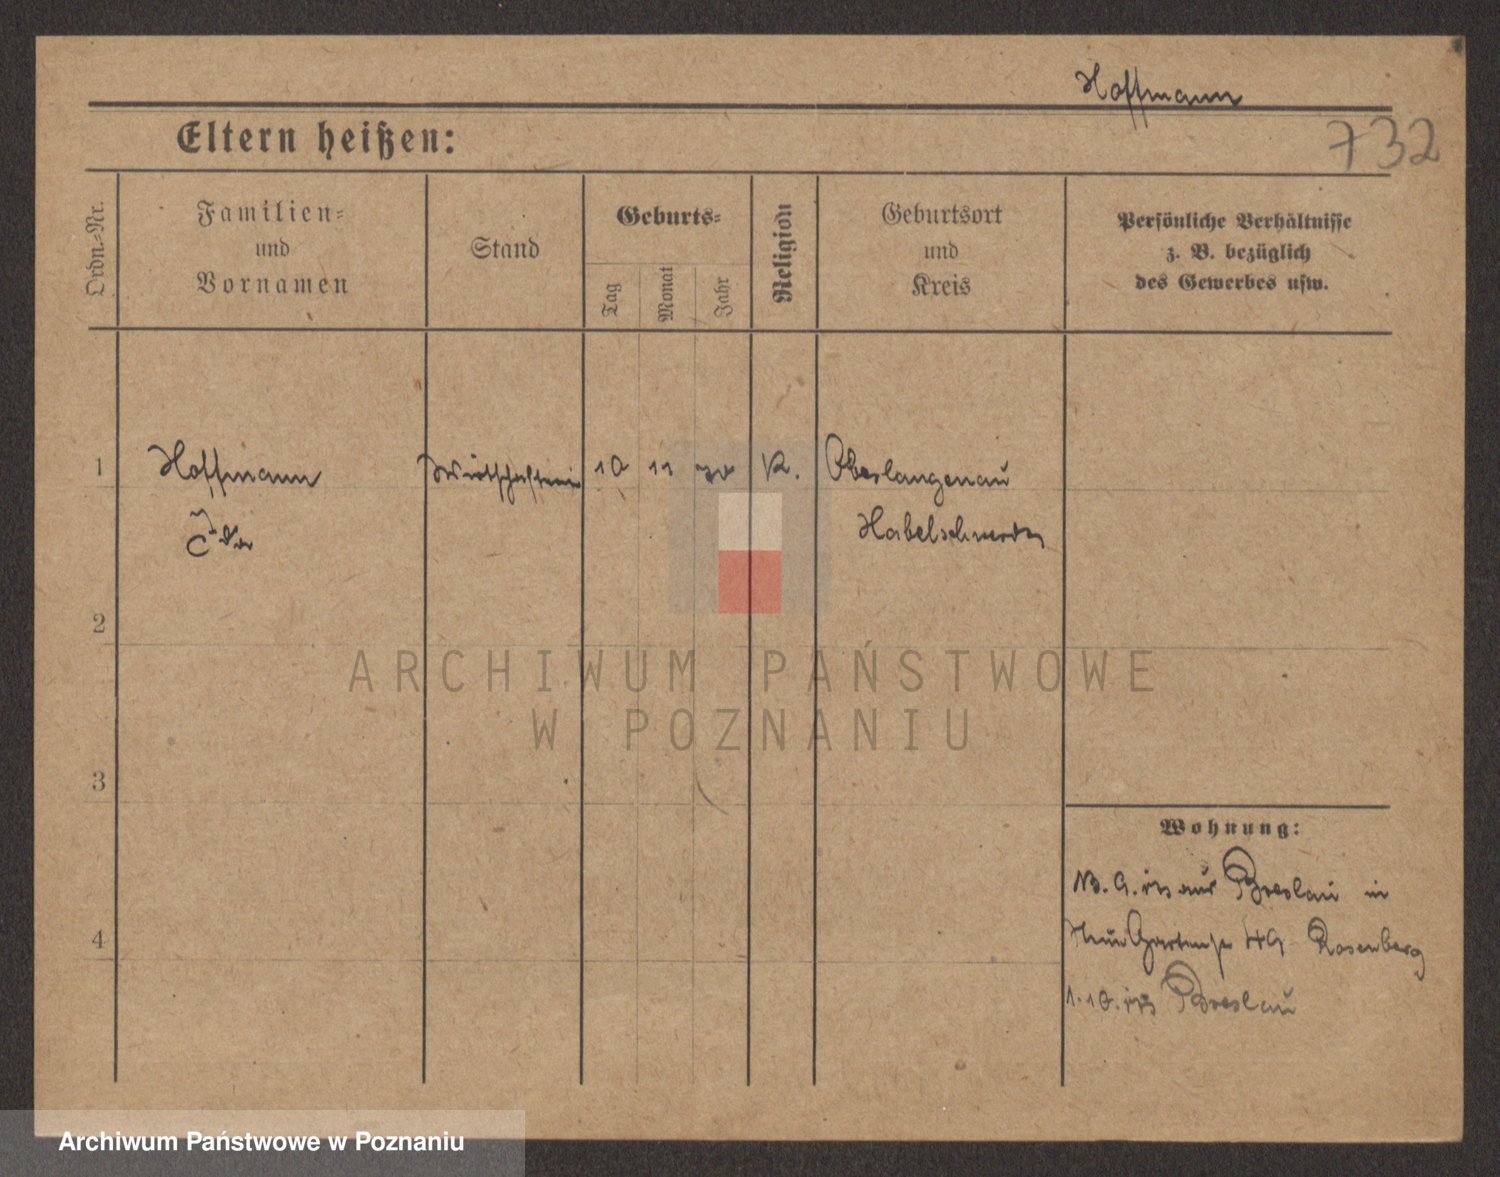 Hoffmann
732
Eltern heißen:
Ordn.-Nr.
Familien-
und
Vornamen
Stand
Geburts-
Tag
Monat
Jahr
Religion
Geburtsort
und
Kreis
Persönliche Verhältnisse
z. B. bezüglich
des Gewerbes usw.
1 Hoffmann 10 11 K. Oberlangenau
Habelschwerdt
2
3
4
ARCHIWUM PAŃSTWOWE
W POZNANIU
Wohnung:
aus Breslau in
49 Rosenberg
1.10. Breslau
Archiwum Państwowe w Poznaniu